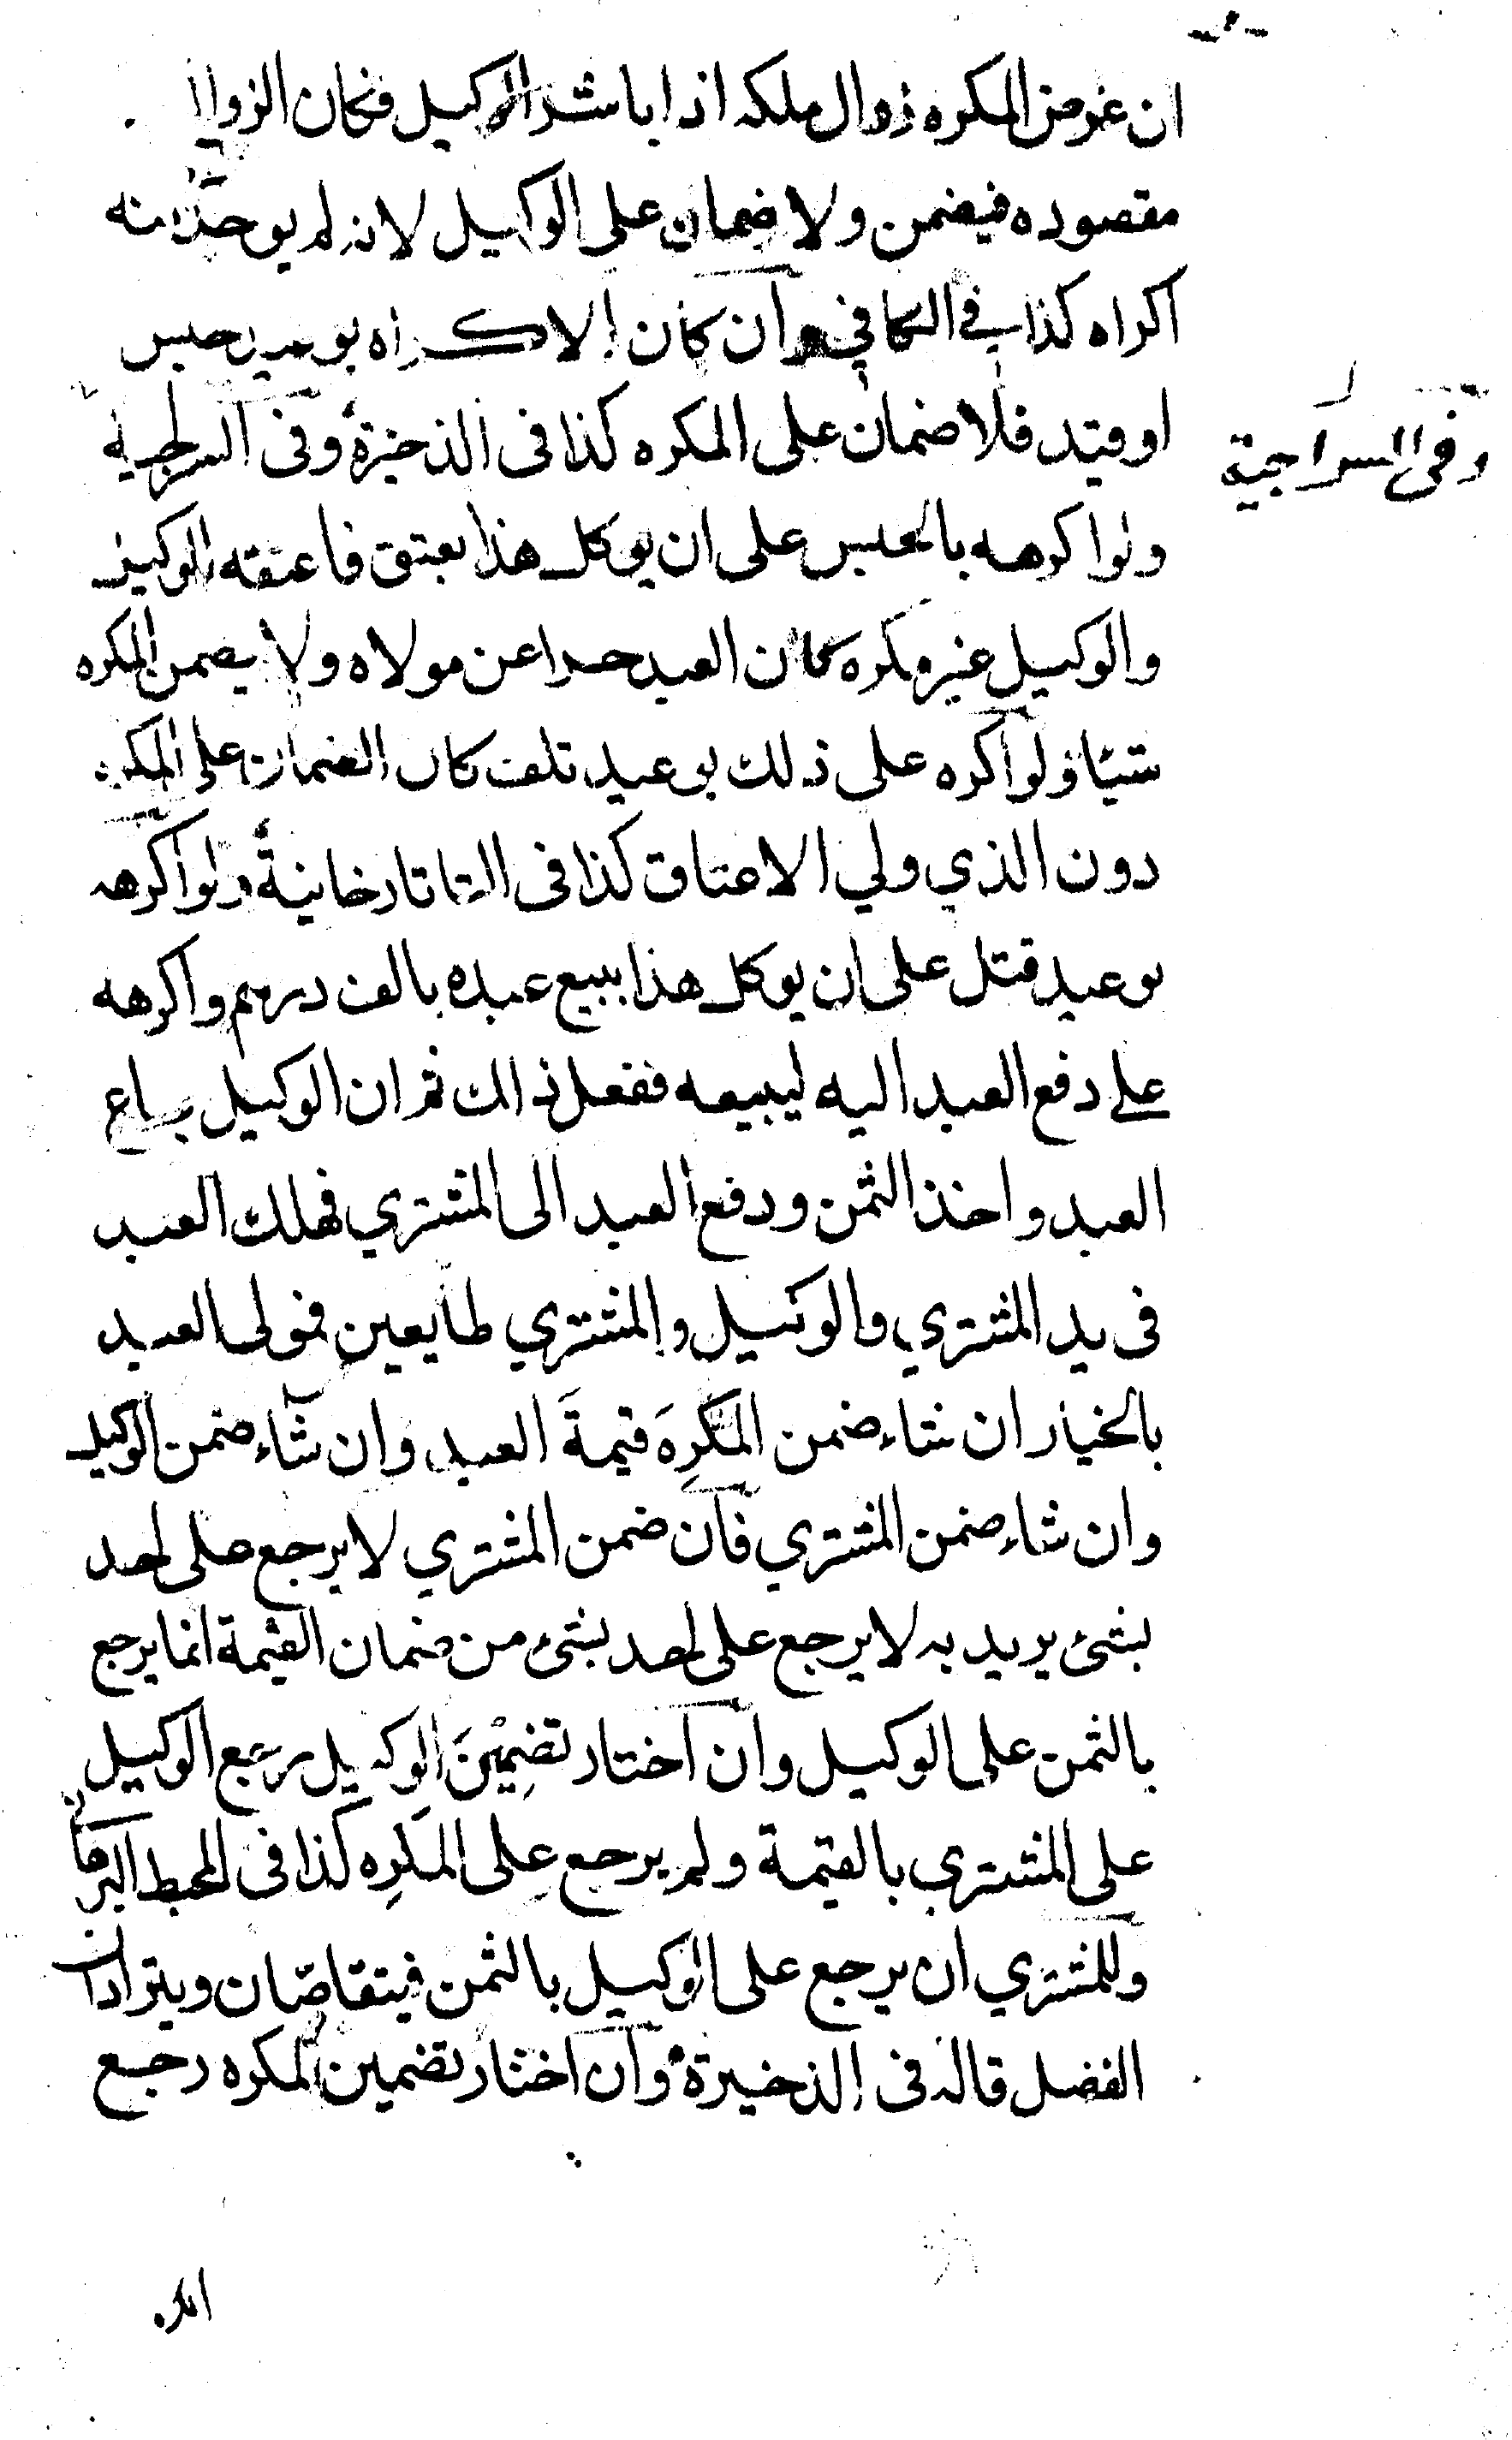 ان غرض المكره زوال ملكه اذا باشر الوكيل فكان الزوال
مقصوده فيضمن ولا ضمان على الوكيل لانه لم يوجد منه
اكراه كذا في الكافي وان كان الاكراه بوعيد حبس
او قيد فلا ضمان على المكره كذا فى الذخيرة وفى السراجية
وفى السراجية
ولو اكرهه بالحبس على ان يوكل هذا بعتق فاعتقه الوكيل
والوكيل غير مكره كان العبد حرا عن مولاه ولا يضمن المكره
شيئا ولو اكره على ذلك بوعيد تلف كان الضمان على المكره
دون الذي ولي الاعتاق كذا فى التاتارخانية ولو اكرهه
بوعيد قتل على ان يوكل هذا ببيع عبده بالف درهم واكرهه
على دفع العبد اليه ليبيعه ففعل ذالك ثم ان الوكيل باع
العبد واخذ الثمن ودفع العبد الى المشتري فهلك العبد
فى يد المشتري والوكيل والمشتري طايعين فمولى العبد
بالخيار ان شاء ضمن المكرِهَ قيمةَ العبد وان شاء ضمن الوكيل
وان شاء ضمن المشتري فان ضمن المشتري لا يرجع على احد
بشئ يريد به لا يرجع على احد بشئ من ضمان القيمة انما يرجع
بالثمن على الوكيل وان اختار تضمِيْنَ الوكيل رجع الوكيل
على المشتري بالقيمة ولم يرجع على المكرِه كذا فى المحيط البرهاني
وللمشتري ان يرجع على الوكيل بالثمن فيتقاصّان ويترادان
الفضل قاله فى الذخيرة وان اختار تضمين المكره رجع